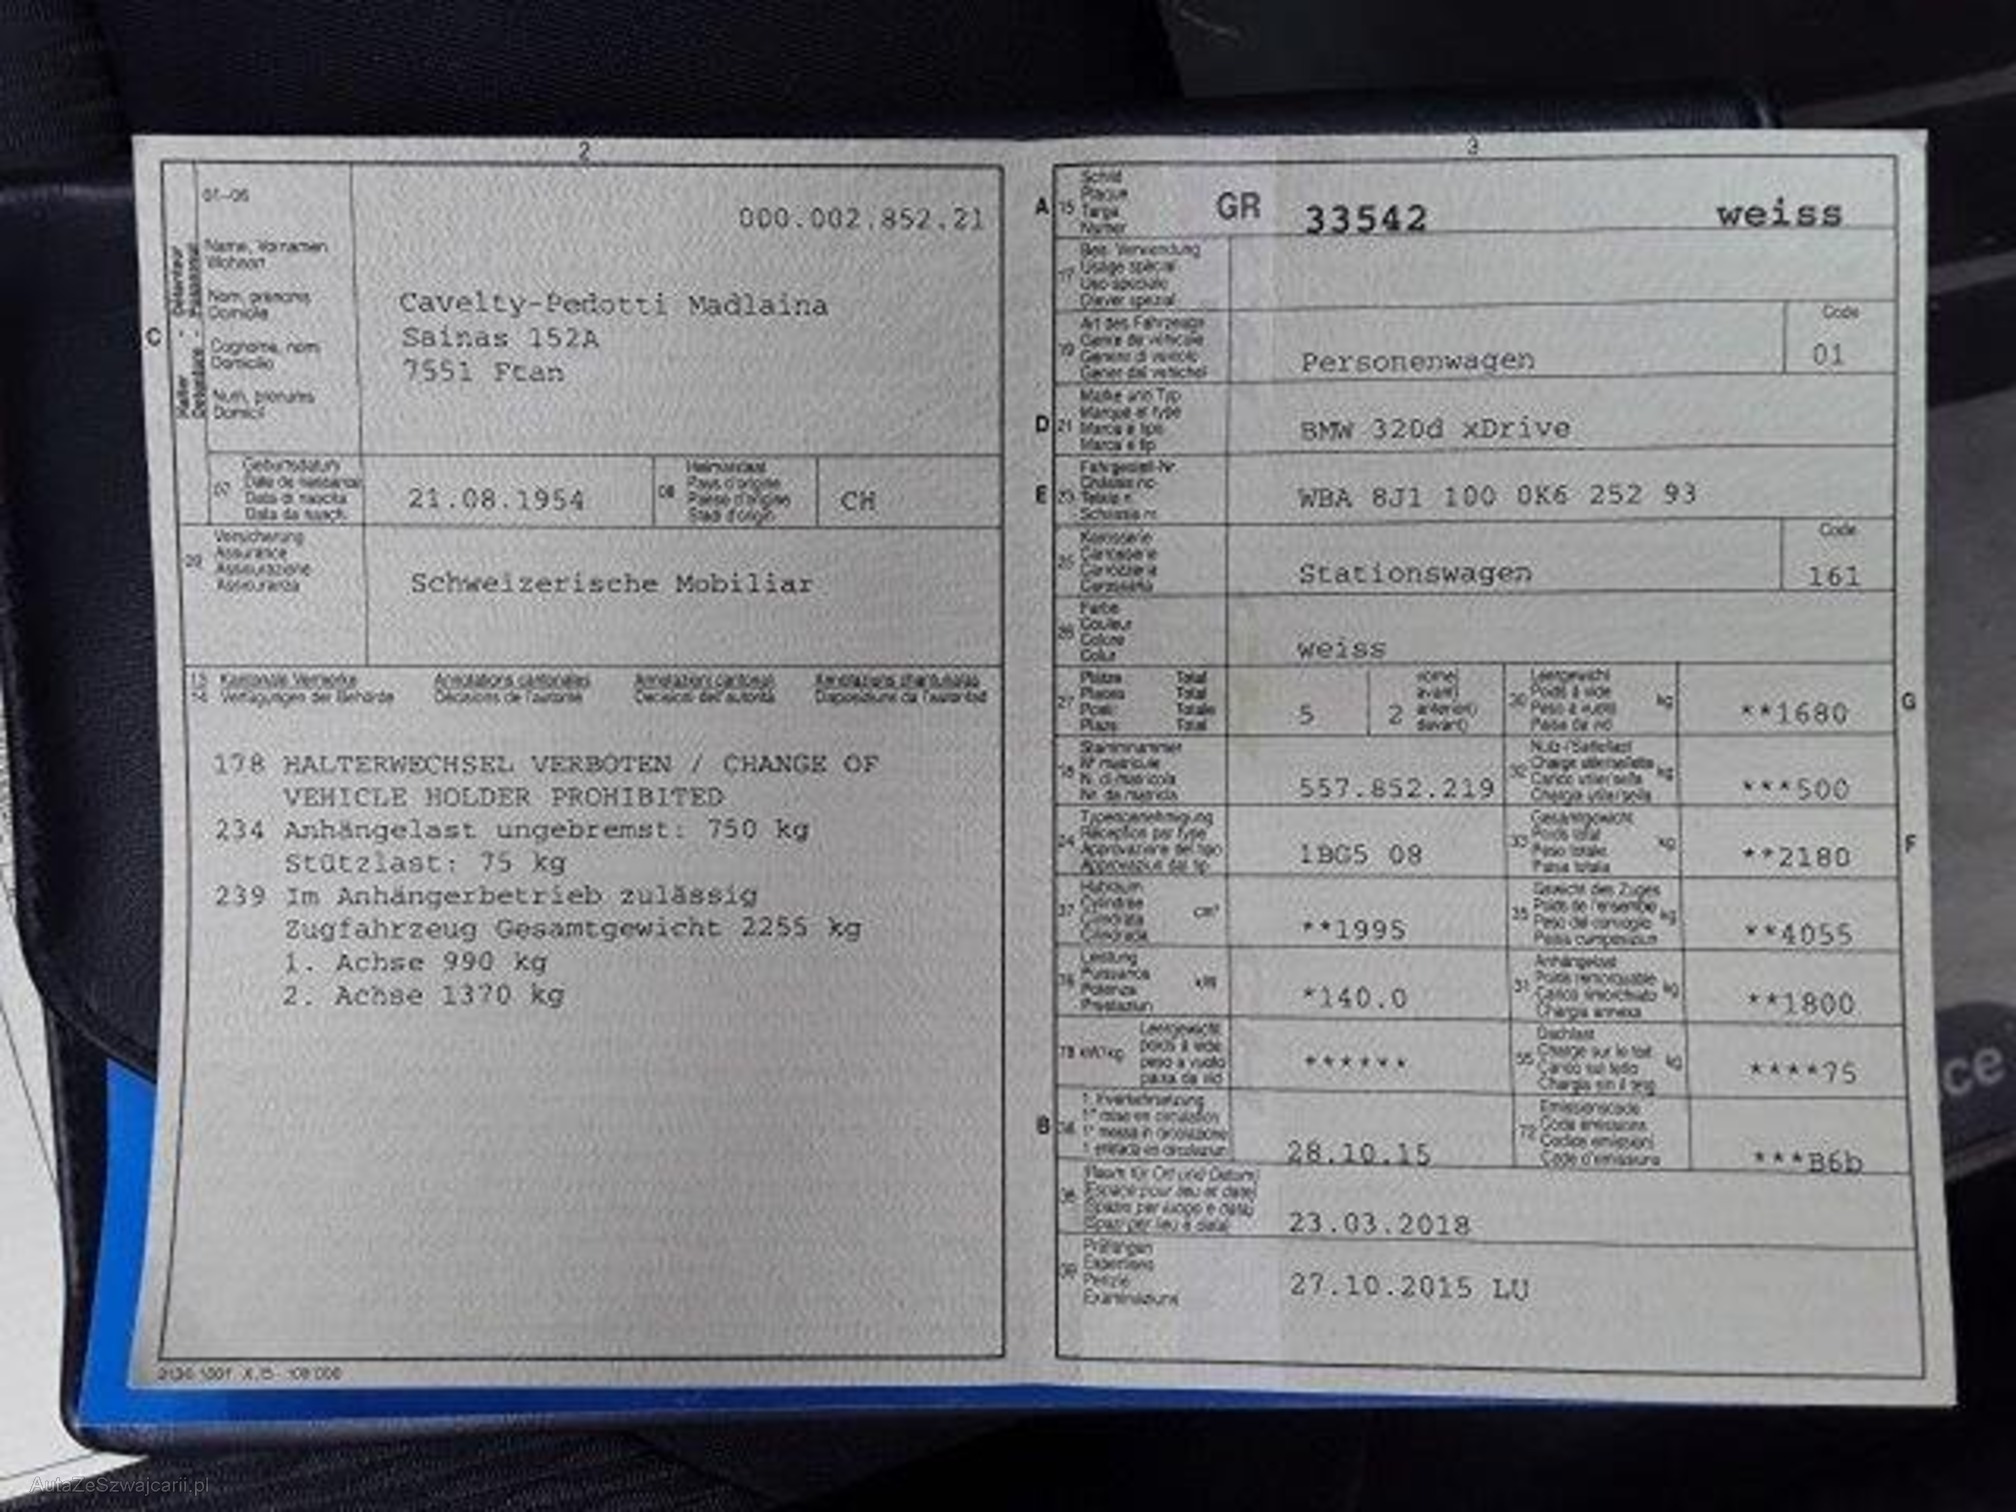 2
01-06
000.002.852.21
C
Halter - Détenteur
Detentore - Possessur
Name, Vornamen
Wohnort
Nom, prénoms
Domicile
Cognome, nomi
Domicilio
Num, prenums
Domicil
Cavelty-Pedotti Madlaina
Sainas 152A
7551 Ftan
07
Geburtsdatum
Date de naissance
Data di nascita
Data da nasch.
21.08.1954
08
Heimatstaat
Pays d'origine
Paese d'origine
Stadi d'origin
CH
09
Versicherung
Assurance
Assicurazione
Assicuranza
Schweizerische Mobiliar
13 Kantonale Vermerke Annotations cantonales Annotazioni cantonali Annotaziuns chantunalas
14 Verfügungen der Behörde Décisions de l'autorité Decisioni dell'autorità Disposiziuns da l'autoritad
178 HALTERWECHSEL VERBOTEN / CHANGE OF
VEHICLE HOLDER PROHIBITED
234 Anhängelast ungebremst: 750 kg
Stützlast: 75 kg
239 Im Anhängerbetrieb zulässig
Zugfahrzeug Gesamtgewicht 2255 kg
1. Achse 990 kg
2. Achse 1370 kg
3
A 15
Schild
Plaque
Targa
Numer
GR 33542 weiss
17
Bes. Verwendung
Usage spécial
Uso speciale
Diever spezial
19
Art des Fahrzeugs
Genre de véhicule
Genere di veicolo
Gener dal vehichel
Personenwagen
Code
01
D 21
Marke und Typ
Marque et type
Marca e tipo
Marca e tip
BMW 320d xDrive
E 23
Fahrgestell-Nr.
Châssis no
Telaio n.
Schassis nr.
WBA 8J1 100 0K6 252 93
25
Karosserie
Carrosserie
Carrozzeria
Carossaria
Stationswagen
Code
161
26
Farbe
Couleur
Colore
Colur
weiss
27
Plätze Total
Places Total
Posti Totale
Plazs Total
5
2
vorne)
avant)
anteriori)
davant)
30
Leergewicht
Poids à vide
Peso a vuoto
Paisa da vid
kg
**1680
G
18
Stammnummer
N° matricule
N. di matricola
Nr. da matricla
557.852.219
32
Nutz-/Sattellast
Charge utile/sellette
Carico utile/sella
Chargia utila/sella
kg
***500
24
Typengenehmigung
Réception par type
Approvazione del tipo
Approvaziun dal tip
1BG5 08
33
Gesamtgewicht
Poids total
Peso totale
Paisa totala
kg
**2180
F
37
Hubraum
Cylindrée
Cilindrata
Cilindrada
cm³
**1995
35
Gewicht des Zuges
Poids de l'ensemble
Peso del convoglio
Paisa cumposiziun
kg
**4055
76
Leistung
Puissance
Potenza
Prestaziun
kW
*140.0
31
Anhängelast
Poids remorquable
Carico rimorchiato
Chargia annexa
kg
**1800
78 kW/kg
Leergewicht
poids à vide
peso a vuoto
paisa da vid
******
55
Dachlast
Charge sur le toit
Carico sul tetto
Chargia sin il tetg
kg
****75
B 36
1. Inverkehrsetzung
1re mise en circulation
1a messa in circolazione
1. entrada en circulaziun
28.10.15
72
Emissionscode
Code émissions
Codice emissioni
Code d'emissiuns
***B6b
38
Raum für Ort und Datum
Espace pour lieu et date
Spazio per luogo e data
Spazi per lieu e data
23.03.2018
39
Prüfungen
Expertises
Perizie
Examinaziuns
27.10.2015 LU
ce
AutaZeSzwajcarii.pl